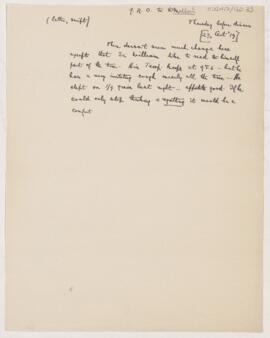 (letter, script)
Thursday before dinner
[23, Oct '19]
There doesn't seem much change here
except that Sir William likes to read to himself
part of the time. His Temp. keeps at 99.6 - but he
has a very irritating cough nearly all the time. He
slept on 1/9 grain last night - appetite good. If he
could only stop thinking & spitting it would be a
comfort